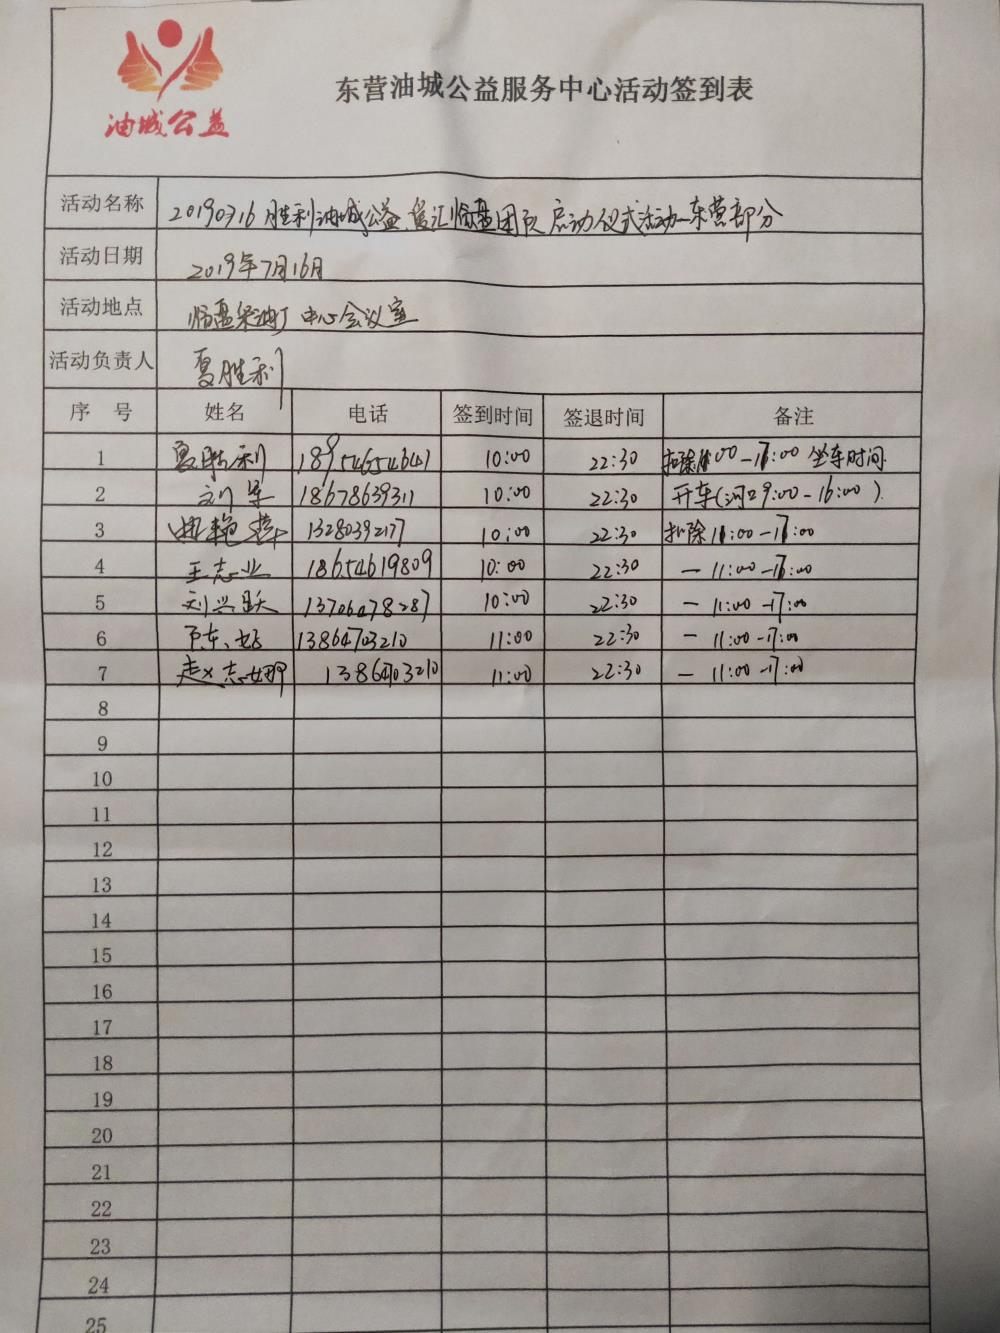 油城公益
东营油城公益服务中心活动签到表
活动名称 20190716胜利油城公益、汇临盘团队启动仪式活动—东营部分
活动日期 2019年7月16日
活动地点 临盘采油厂中心会议室
活动负责人 夏胜利
序 号 姓名 电话 签到时间 签退时间 备注
1 夏胜利 18954654641 10:00 22:30 扣除11:00-17:00 坐车时间
2 刘军 18678639311 10:00 22:30 开车(河口9:00-16:00)
3 13280392177 10:00 22:30 扣除11:00-17:00
4 王志业 18654619809 10:00 22:30 — 11:00-17:00
5 刘兴跃 13706478287 10:00 22:30 — 11:00-17:00
6 13864703210 11:00 22:30 — 11:00-17:00
7 赵志 13864703210 11:00 22:30 — 11:00-17:00
8
9
10
11
12
13
14
15
16
17
18
19
20
21
22
23
24
25